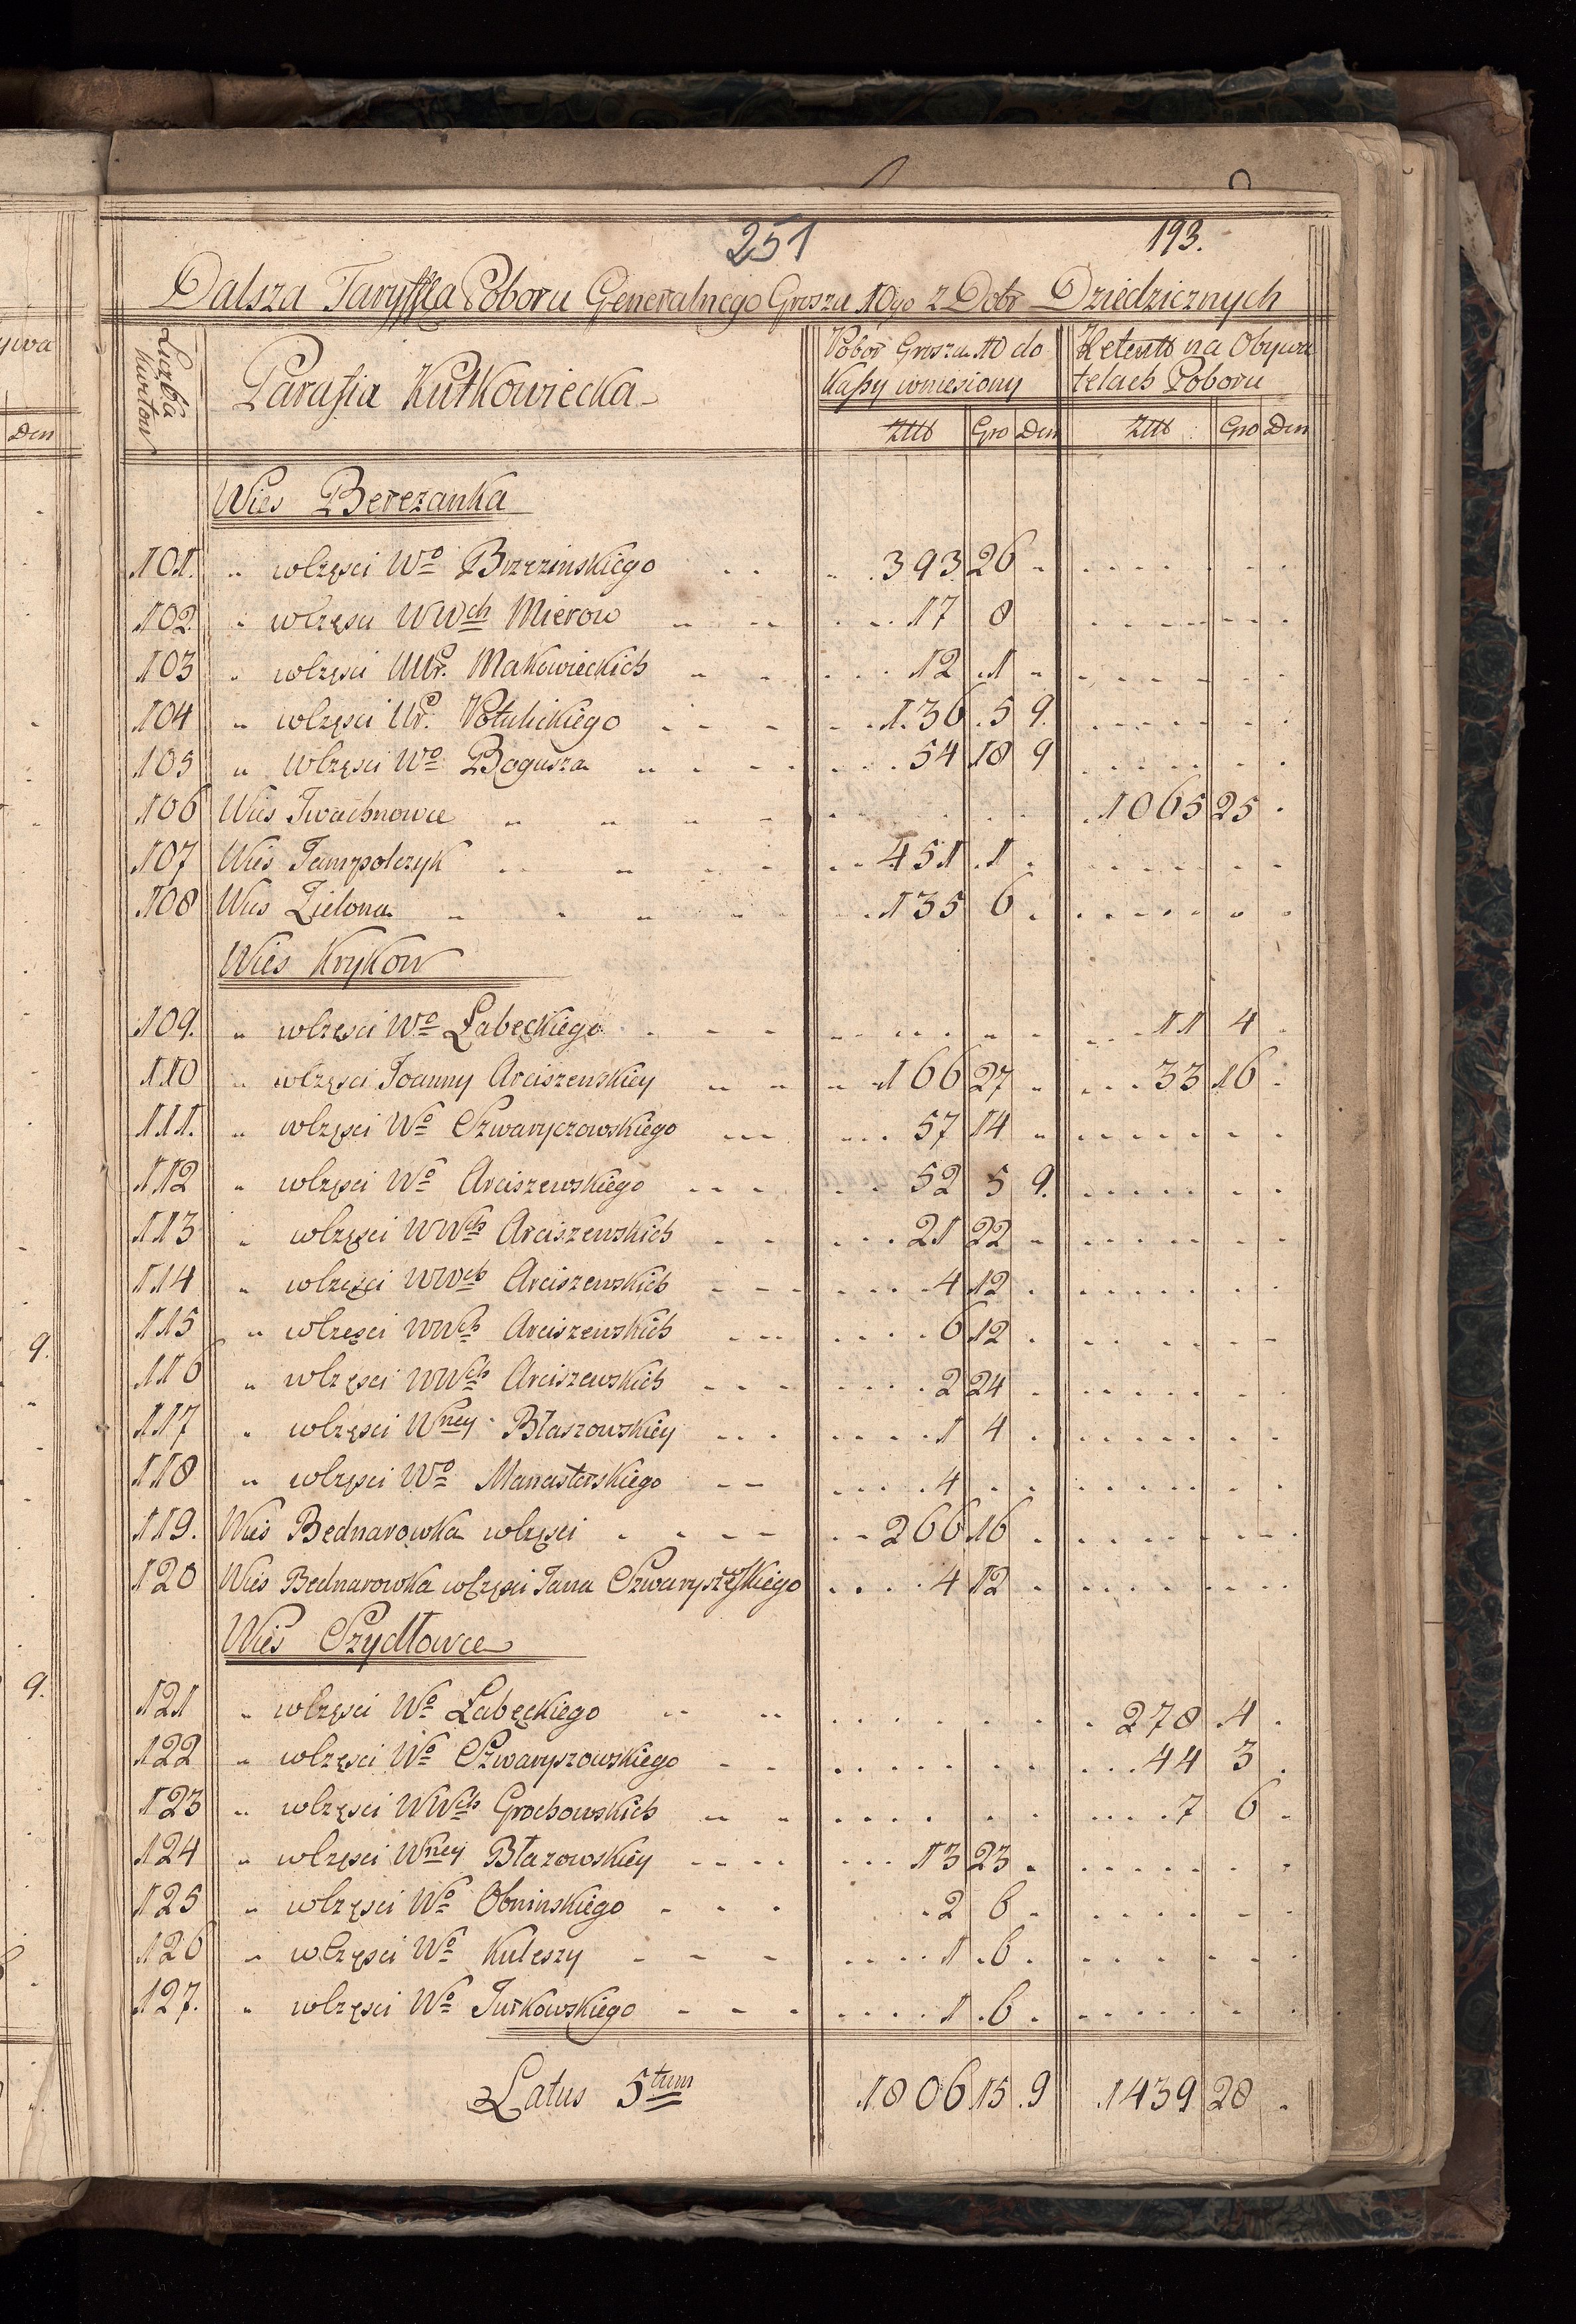 251
193.
Dalsza Taryffa Poboru Generalnego Grosza 10go z Dobr Dziedzicznych
Liczba Kwitow
Parafia Kutkowiecka
Pobor Grosza 10 do Kassy wniesiony
Retent na Obywatelach Poboru
Złł Gro Den Złł Gro Den
Wies Berezanka
101. " wczęsci Wo Brzezinskiego 393 26
102 " wczęsci WWch Mierow 17 8
103 " wczęsci UUr. Makowieckich 12 1
104 " wczęsci Ur. Potulickiego 136 5 9.
105 " wczęsci Wo Bogusza 54 18 9
106 Wies Iwachnowce 1065 25
107 Wies Jampolczyk 451 1
108 Wies Zielona 135 6
Wies Krykow
109. " wczesci Wo Łabęckiego 11 4
110 " wczęsci Joanny Arciszewskiey 166 27 33 16
111. " wczęsci Wo Szwaryczowskiego 57 14
112 " wczęsci Wo Arciszewskiego 52 5 9.
113 " wczęsci WWch Arciszewskich 21 22
114 " wczęsci WWch Arciszewskich 4 12
115 " wczesci WWch Arciszewskich 6 12
116 " wczęsci WWch Arciszewskich 2 24
117 " wczęsci Wney Błaszowskiey 1 4
118 " wczęsci Wo Manasterskiego 4
119. Wies Bednarowka wczęsci 266 16
120 Wies Bednarowka wczęsci Jana 4 12
Wies Szydłowce
121 " wczęsci Wo Łabęckiego 278 4
122 " wczęsci Wo Szwaryszowskiego 44 3
123 " wczęsci WWch Grochowskich 7 6
124 " wczęsci Wney Błazowskiey 13 23
125 " wczęsci Wo Obninskiego 2 6
126 " wczęsci Wo Kuleszy 1 6
127. " wczęsci Wo Turkowskiego 1 6
Latus 5tum 1806 15 9 1439 28